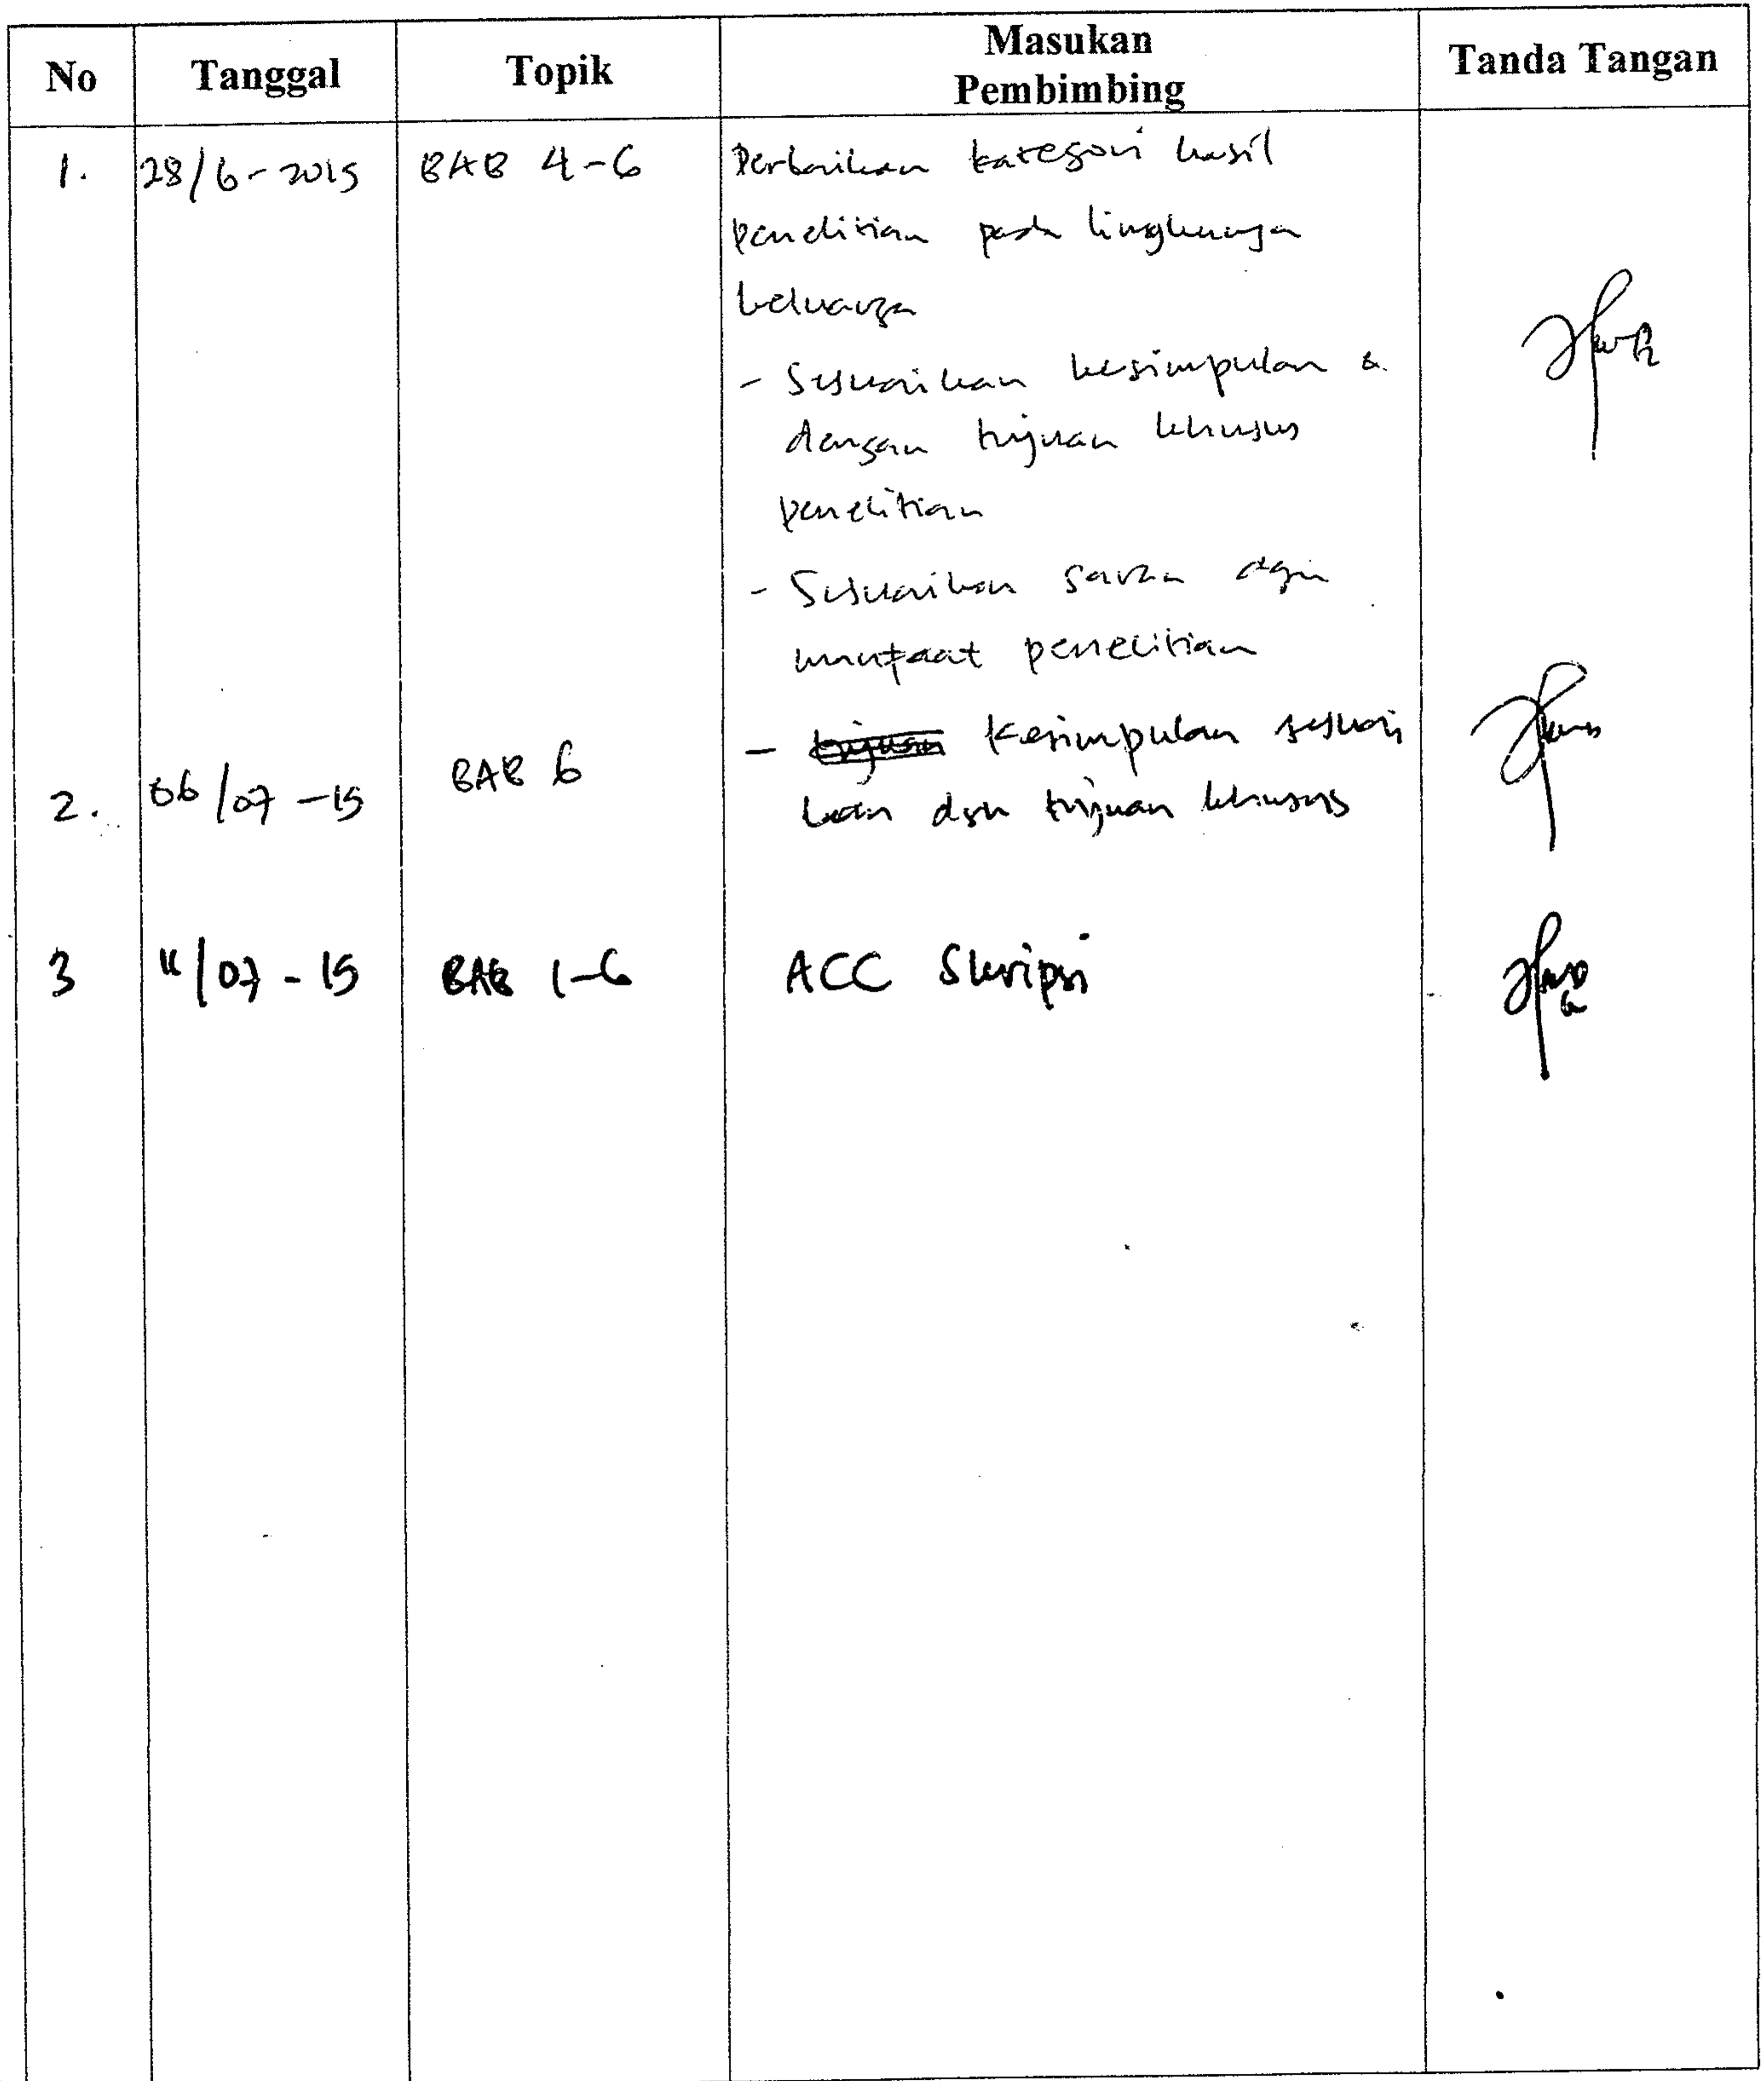 No Tanggal Topik Masukan Pembimbing Tanda Tangan
1. 28/6-2015 BAB 4-6 Perbaikan kategori hasil
penelitian pada lingkunga
keluarga
- Sesuaikan kesimpulan &
dengan tujuan khusus
penelitian
- Sesuaikan saran dgn
manfaat penelitian
2. 06/07-15 BAB 6 - tujuan Kesimpulan sesuai
kan dgn tujuan khusus
3 11/07-15 BAB 1-6 ACC Skripsi